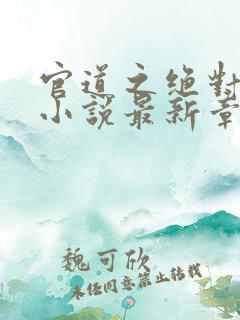 官道之绝对
小说最新章
魏可欣
未经同意禁止转载